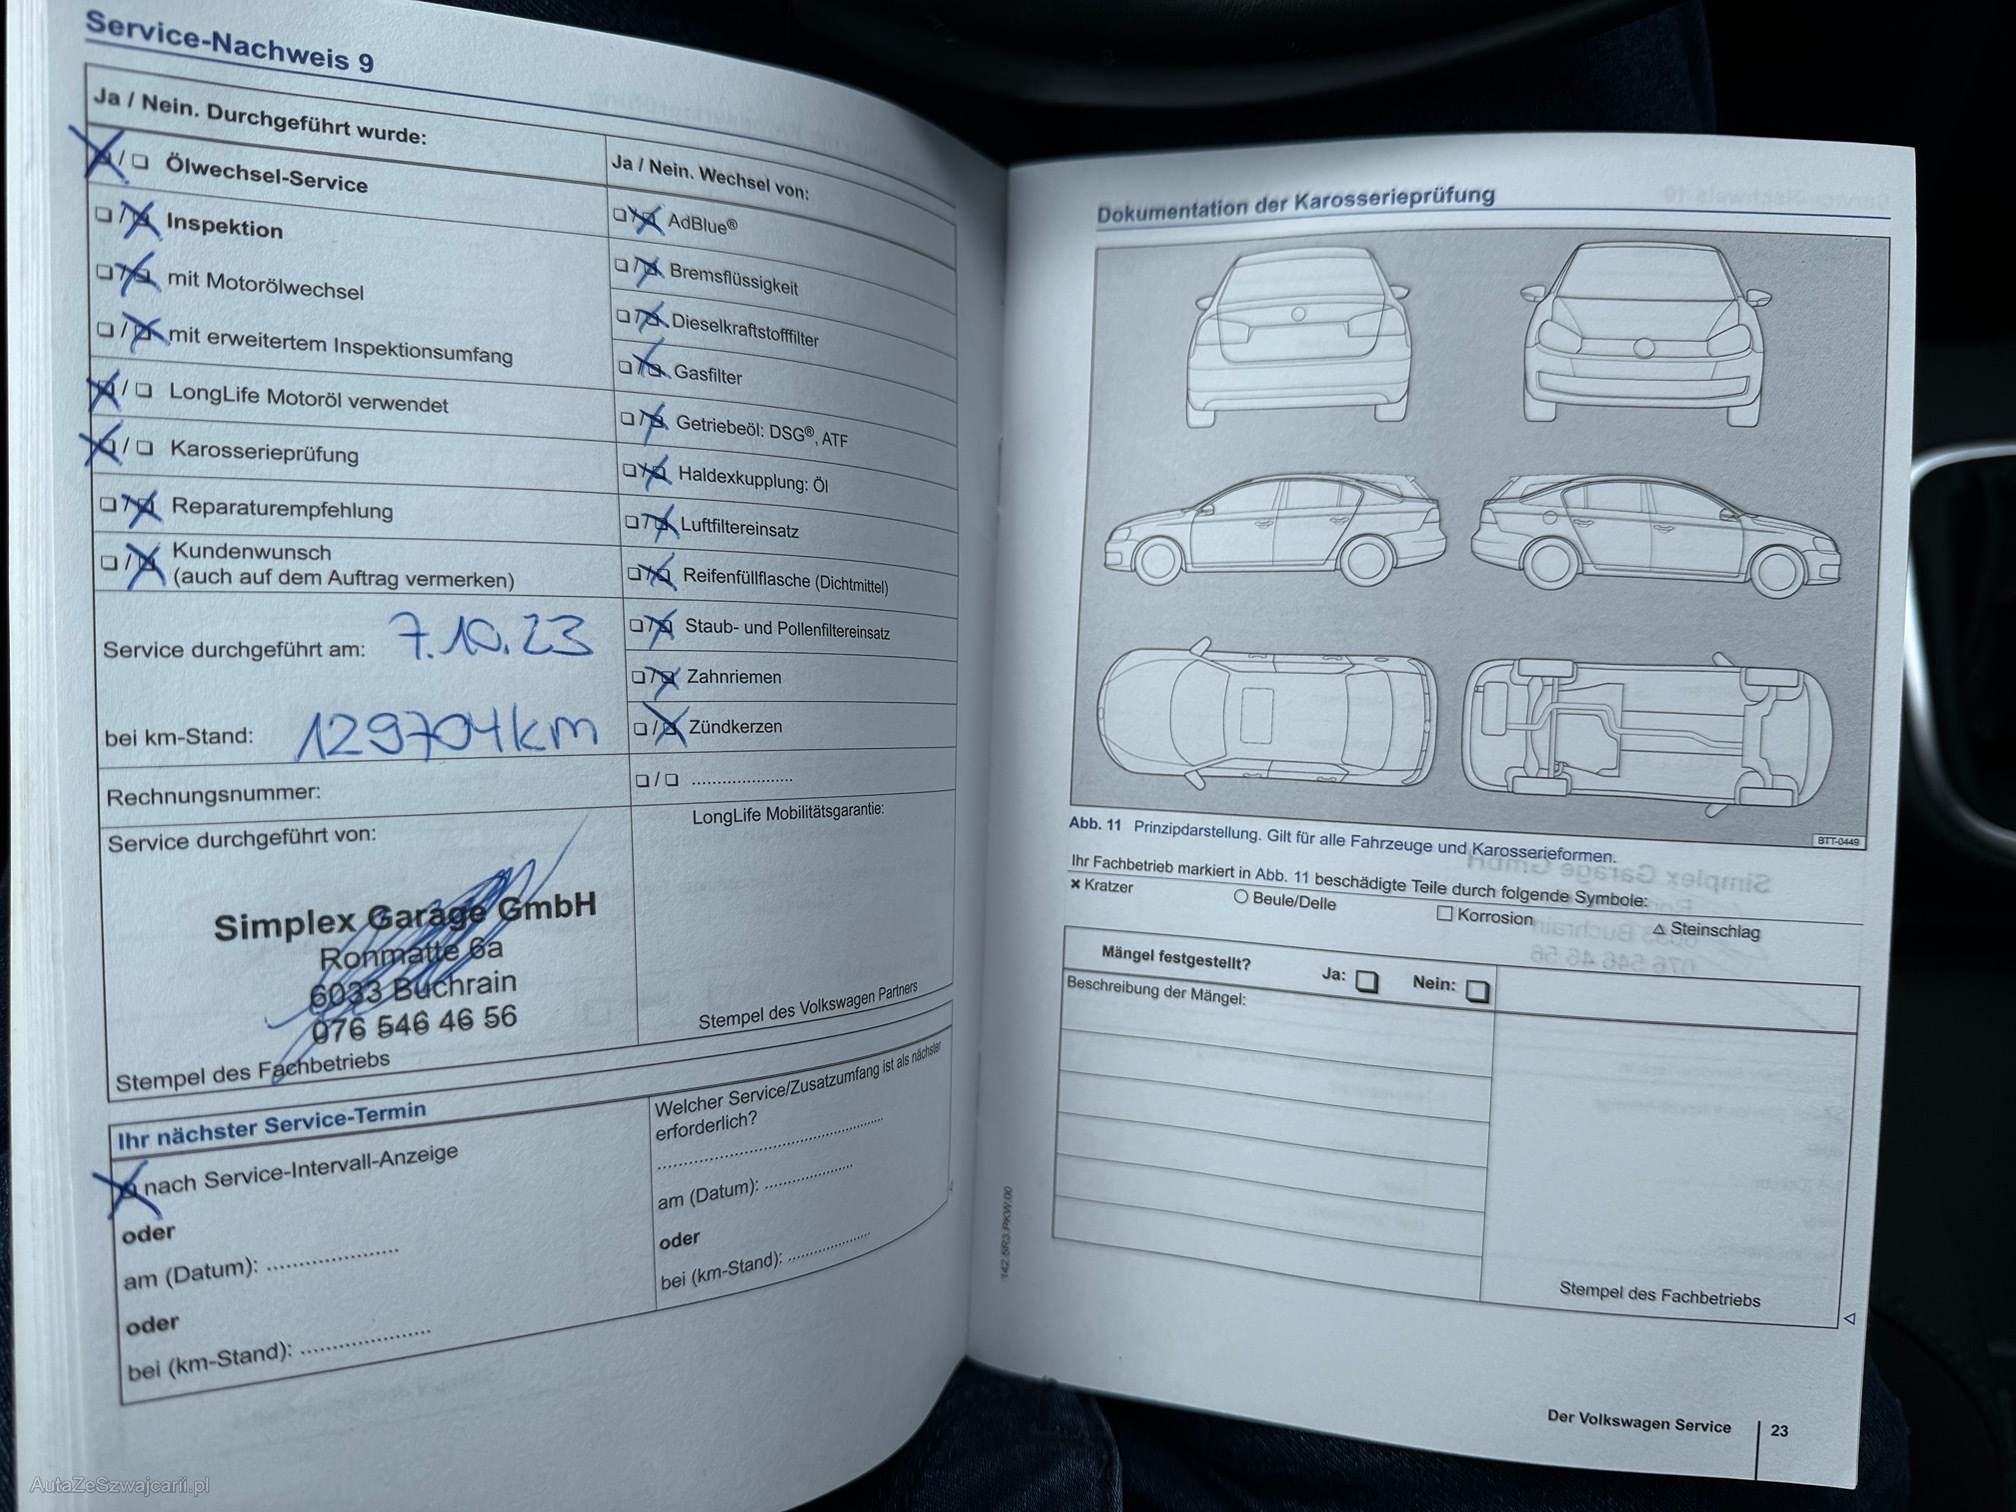 Service-Nachweis 9
Ja / Nein. Durchgeführt wurde:
❏ / ❏ Ölwechsel-Service
❏ / ❏ Inspektion
❏ / ❏ mit Motorölwechsel
❏ / ❏ mit erweitertem Inspektionsumfang
❏ / ❏ LongLife Motoröl verwendet
❏ / ❏ Karosserieprüfung
❏ / ❏ Reparaturempfehlung
❏ / ❏ Kundenwunsch
(auch auf dem Auftrag vermerken)
Service durchgeführt am: 7.10.23
bei km-Stand: 129704km
Rechnungsnummer:
Service durchgeführt von:
Simplex Garage GmbH
Ronmatte 6a
6033 Buchrain
076 546 46 56
Stempel des Fachbetriebs
Ja / Nein. Wechsel von:
❏ / ❏ AdBlue®
❏ / ❏ Bremsflüssigkeit
❏ / ❏ Dieselkraftstofffilter
❏ / ❏ Gasfilter
❏ / ❏ Getriebeöl: DSG®, ATF
❏ / ❏ Haldexkupplung: Öl
❏ / ❏ Luftfiltereinsatz
❏ / ❏ Reifenfüllflasche (Dichtmittel)
❏ / ❏ Staub- und Pollenfiltereinsatz
❏ / ❏ Zahnriemen
❏ / ❏ Zündkerzen
❏ / ❏ ......................
LongLife Mobilitätsgarantie:
Stempel des Volkswagen Partners
Ihr nächster Service-Termin
❏ nach Service-Intervall-Anzeige
oder
am (Datum): ......................
oder
bei (km-Stand): ......................
Welcher Service/Zusatzumfang ist als nächster
erforderlich?
......................................
am (Datum): ...............
oder
bei (km-Stand): ..............
142.5R3.PKW.00
Dokumentation der Karosserieprüfung
BTT-0449
Abb. 11 Prinzipdarstellung. Gilt für alle Fahrzeuge und Karosserieformen.
Ihr Fachbetrieb markiert in Abb. 11 beschädigte Teile durch folgende Symbole:
× Kratzer ○ Beule/Delle □ Korrosion △ Steinschlag
Mängel festgestellt? Ja: ❏ Nein: ❏
Beschreibung der Mängel:
Stempel des Fachbetriebs
Der Volkswagen Service 23
AutaZeSzwajcarii.pl